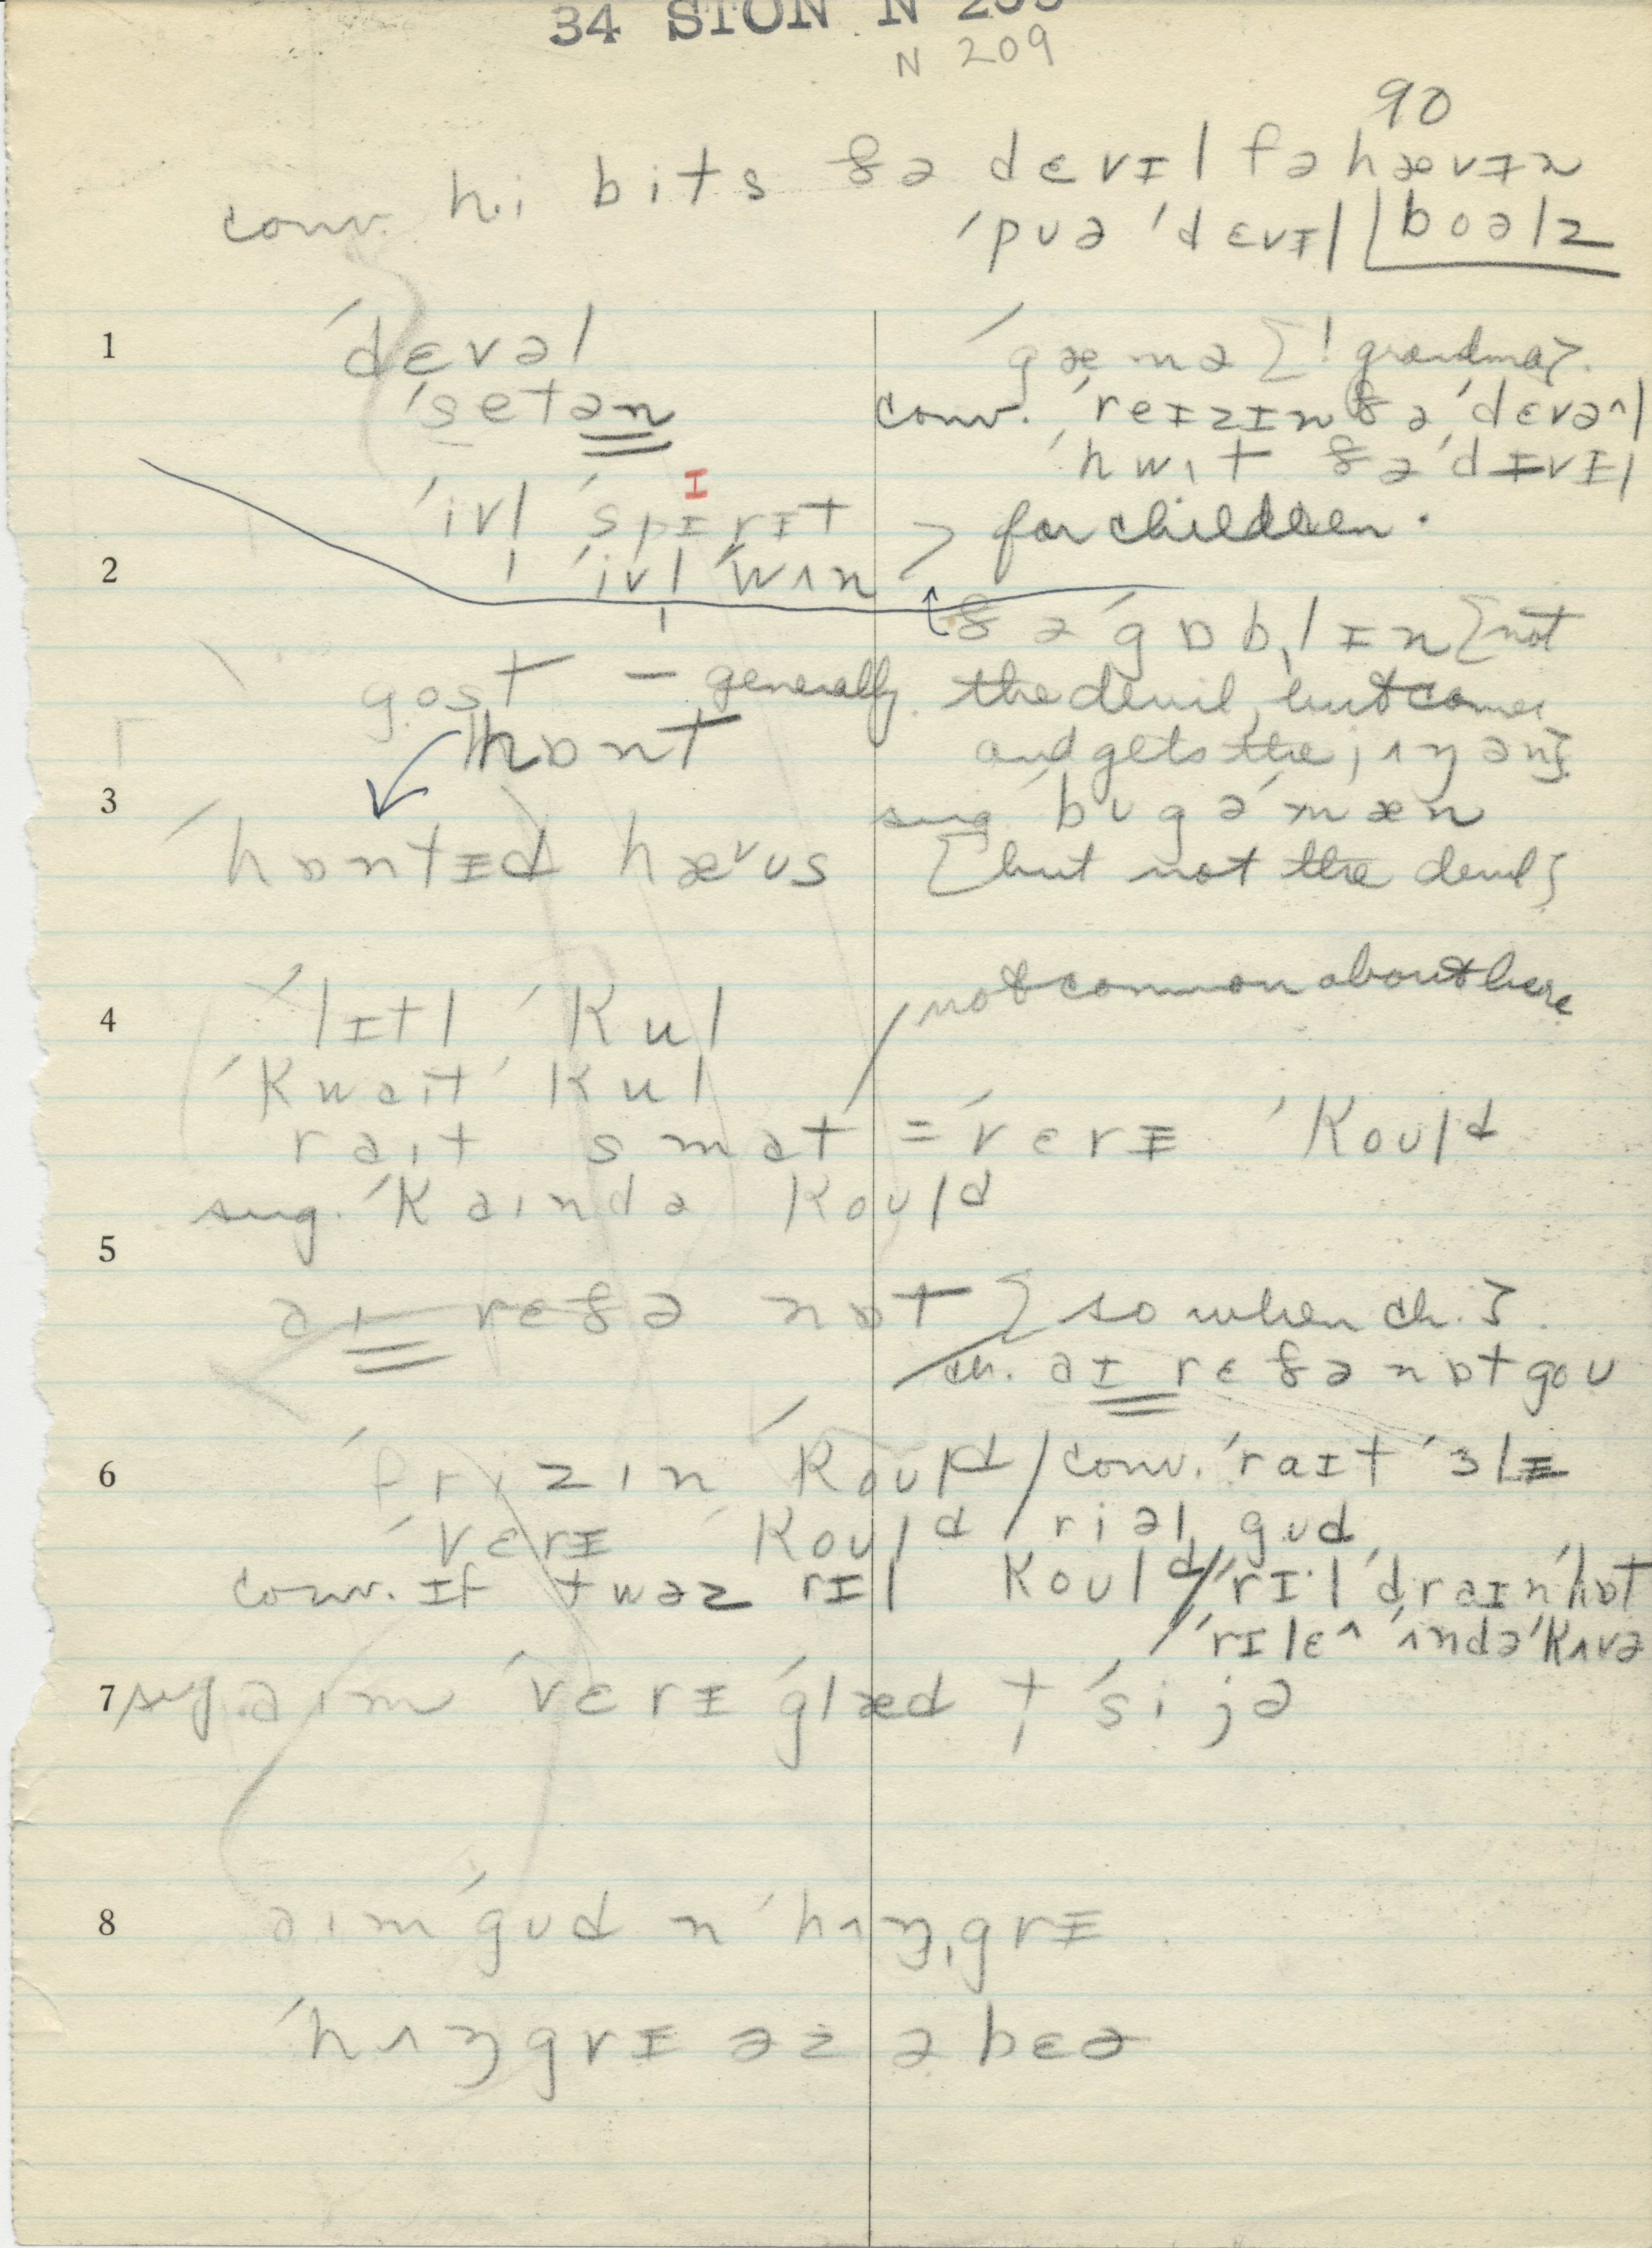 34 STON N 209
N 209
90
conv. hi bits ðə dɛvɪl fə hævɪn
ˈpuə ˈdɛvɪl boəlz
1 ˈdɛvəl
ˈsetən
ˈgæmə [! grandma].
conv. ˈreɪzɪn ðə ˈdɛvə^l
ˈhwɪt ðə ˈdɪvɪl
ˈivl̩ ˈspɪrɪt
ɪ
2 ˈivl̩ ˈwʌn > for children.
ðə ˈgɒb̩lɪn [not
the devil, but comes
and gets the jʌŋən]
gost – generally
hɒnt
3 ˈhɒntɪd hæᵛus
sug. ˈbugəˈmæn
[but not the devil]
4 ˈlɪtl ˈkul
not common about here
ˈkwaɪt ˈkul
raɪt smat = ˈvɛrɪ ˈkould
sug. ˈkaɪndə kould
5 aɪ rɛðə nɒt [so when ch.].
ch. aɪ rɛðə nɒt gou
6 ˈfrizɪn ˈkould / conv. ˈraɪt ˈɜlɪ
ˈvɛrɪ ˈkould / riəl gud
conv. ɪf twəz rɪl kould / ˈrɪ·l ˈdraɪn ˈhɒt
/ ˈrɪlɛ^ ˈʌndəˈkʌvə
7 sug. aɪm ˈvɛrɪ ˈglæd t̩ ˈsi jə
8 aɪm ˈgud n ˈhʌŋ̩grɪ
ˈhʌŋgrɪ əz ə bɛə